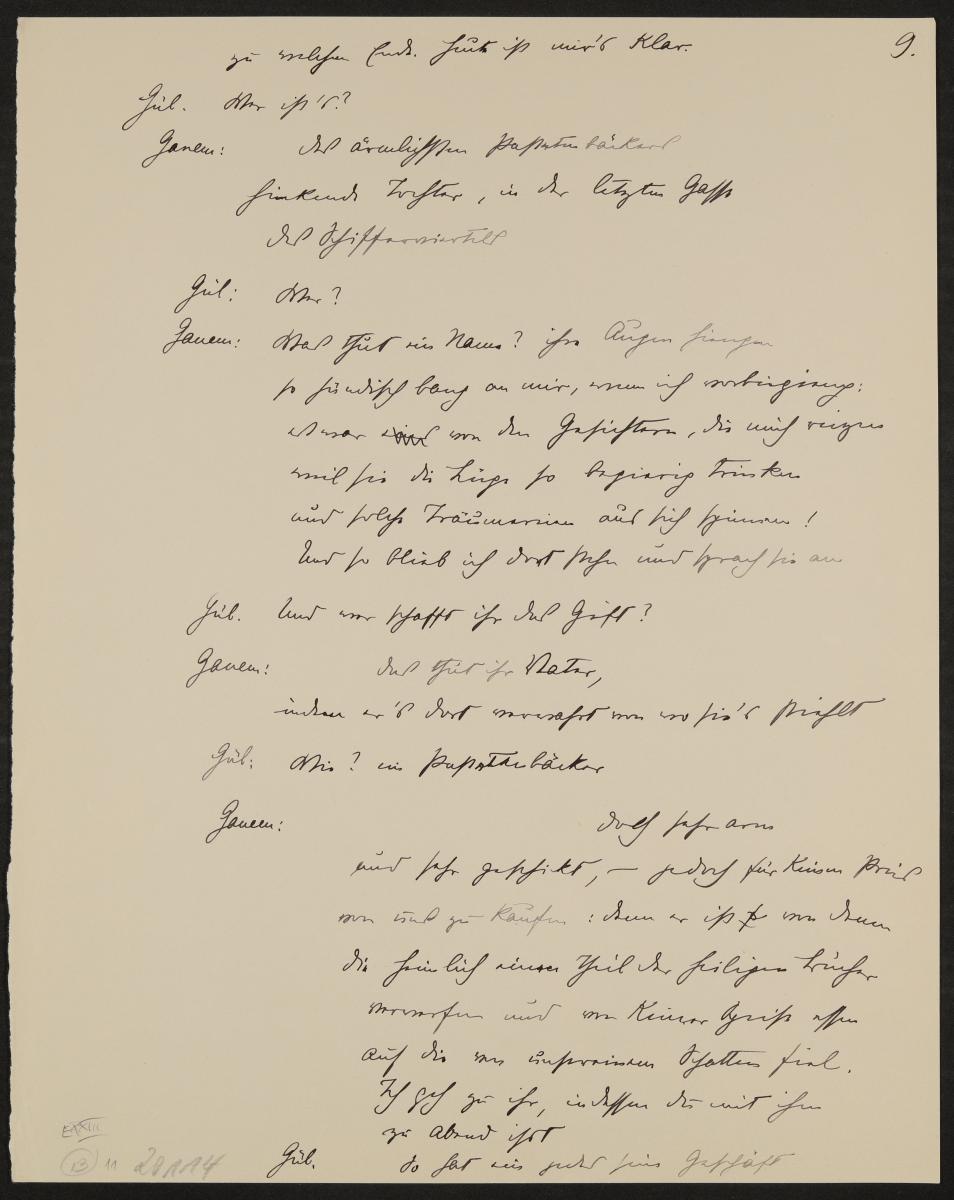 9.
zu welchem Ende. Heute ist mir's klar.
Gül. Wer ist's?
Ganem: des ärmlichsten Pastetenbäckers
hinkende Tochter, in der letzten Gasse
des Schifferviertels
Gül: Wer?
Ganem: Was thut ein Name? ihre Augen hiengen
so hündisch bang an mir, wenn ich vorbeigieng:
es war eins von den Gesichtern, die mich reizen
weil sie die Lüge so begierig trinken
und solche Träumereien aus sich spinnen!
Und so blieb ich dort stehn und sprach sie an
Gül. Und wer schafft ihr das Gift?
Ganem: das thut ihr Vater,
indem er's dort verwahrt von wo sie's stiehlt
Gül: Wie? ein Pastetenbäcker
Ganem: doch sehr arm
und sehr geschikt, – jedoch für keinen Preis
von uns zu kaufen: denn er ist von denen
die heimlich einen Theil der heiligen Bücher
verwerfen und von keiner Speise essen
auf die von unsereinem Schatten fiel.
Ich geh zu ihr, indessen du mit ihm
zu abend isst
Gül. So hat ein jeder sein Geschäft
EAXIII
13 11 20114